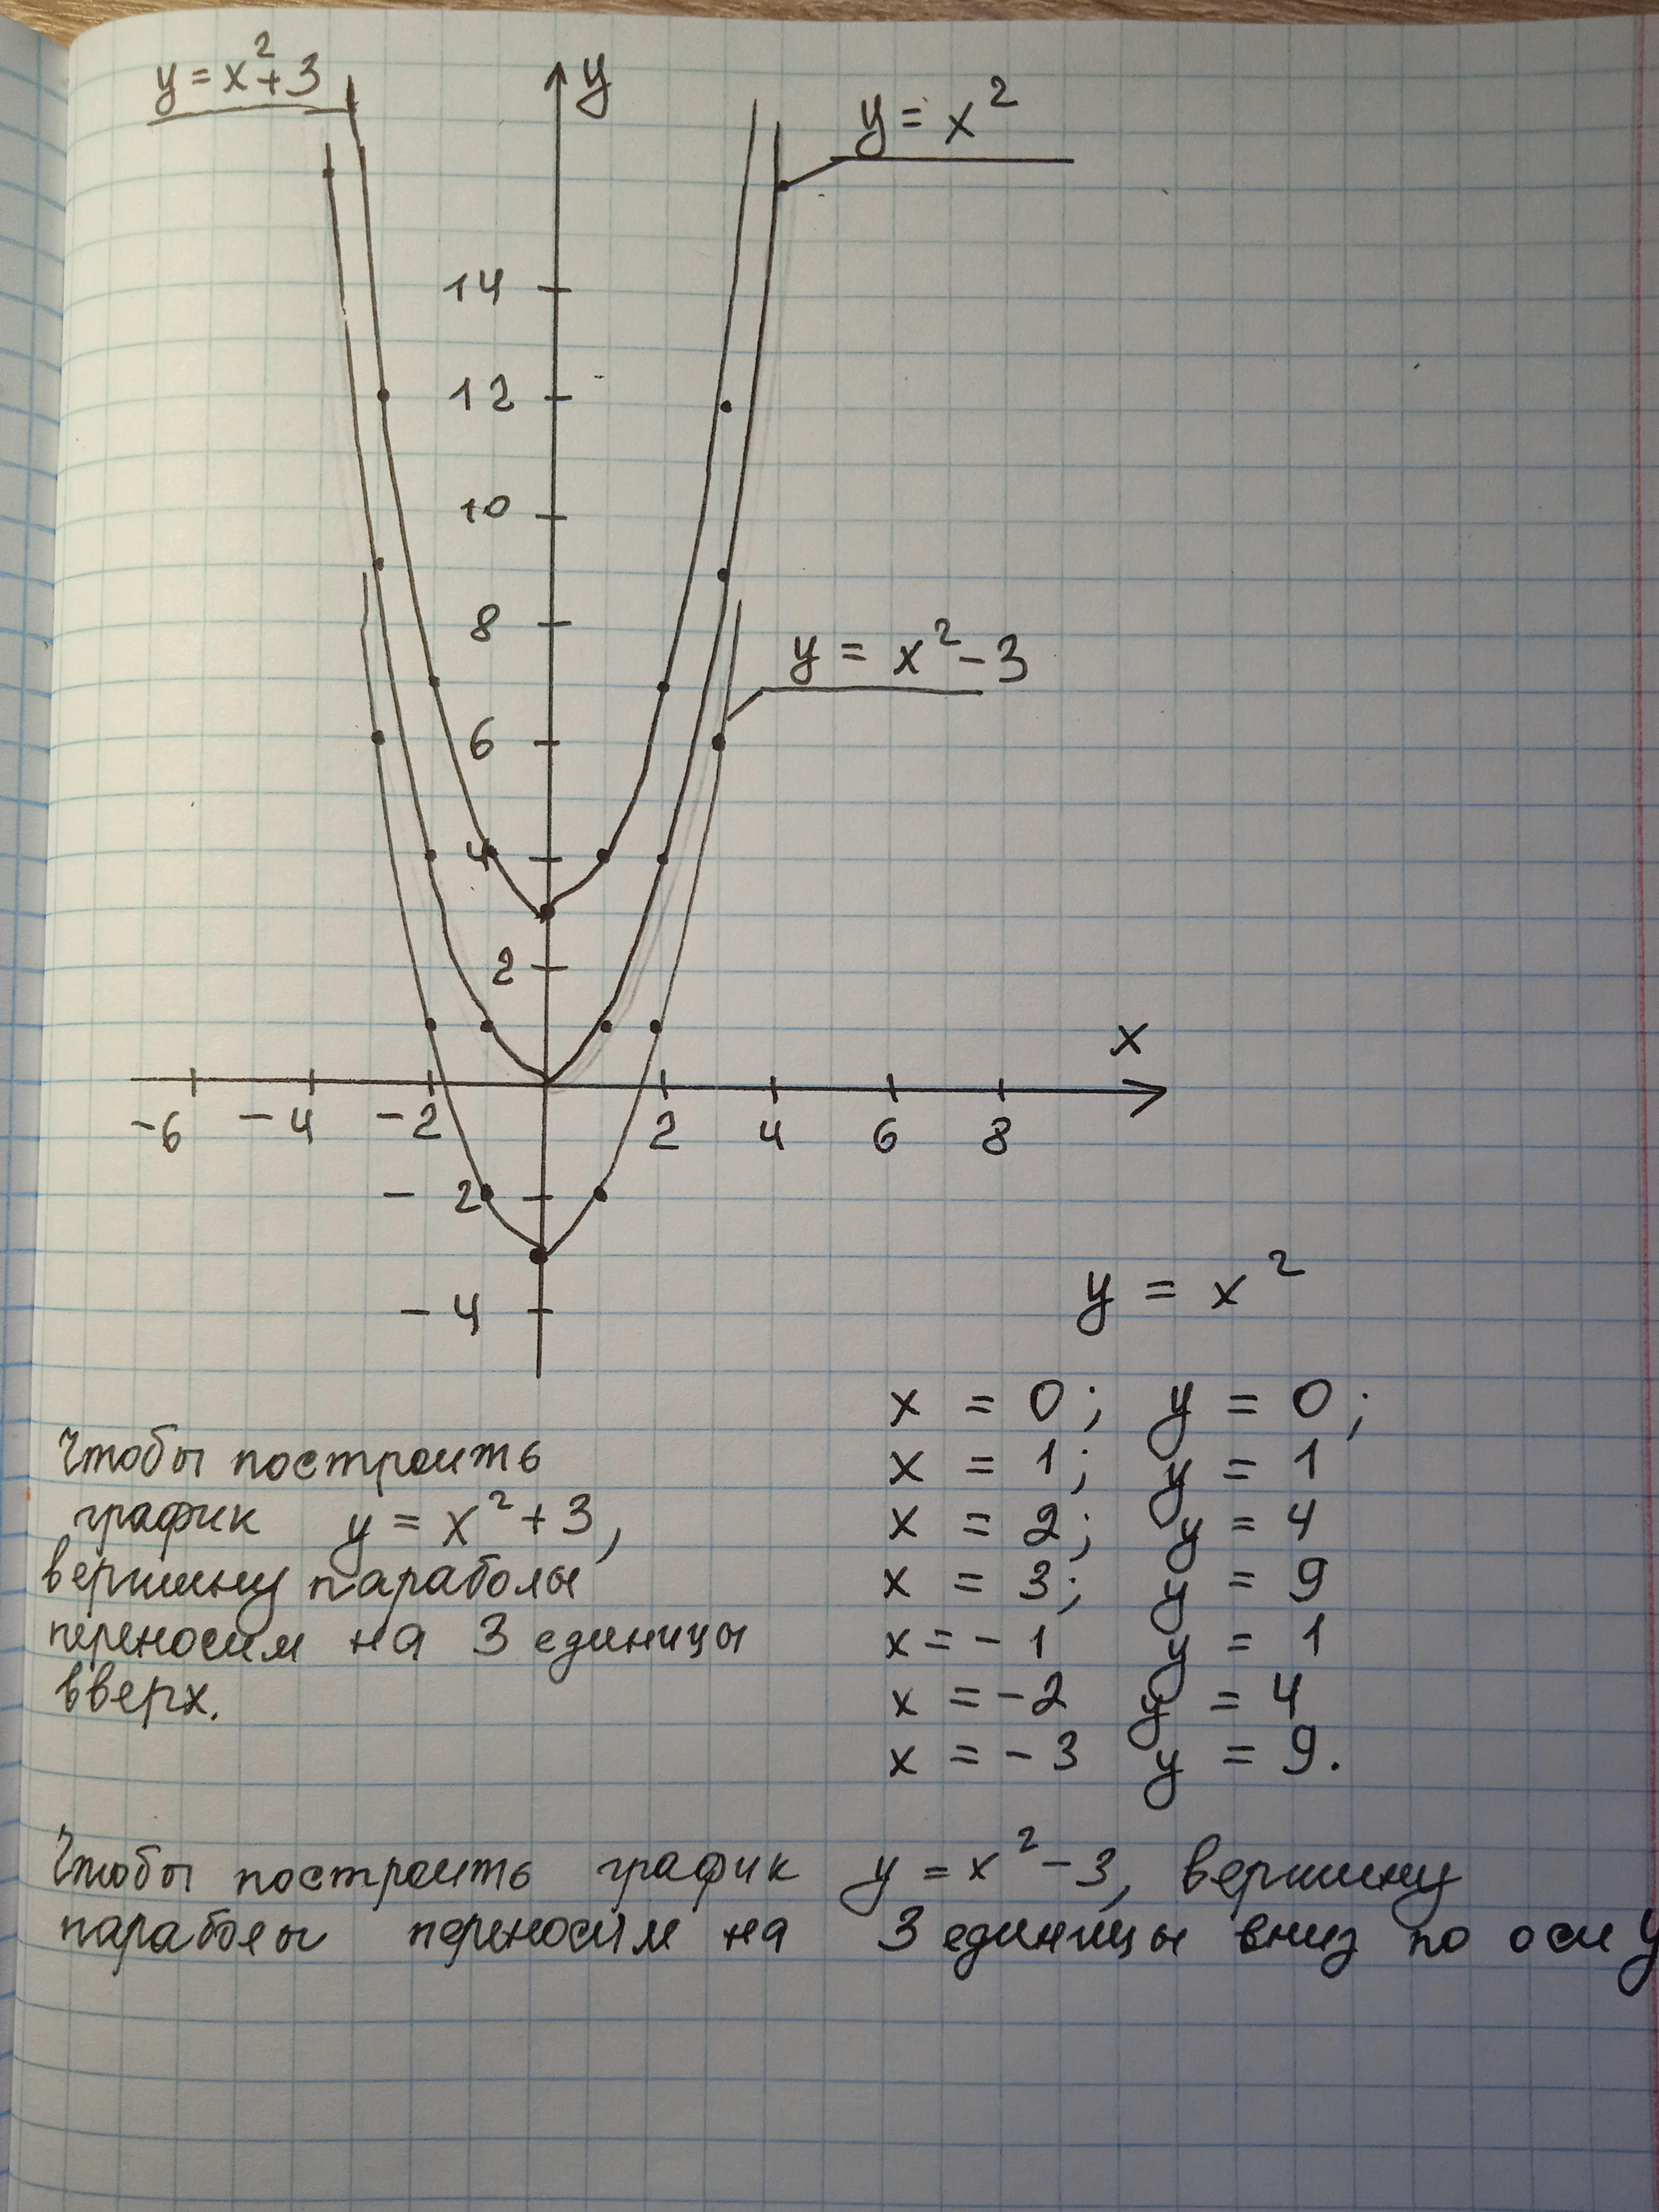 y = x² + 3
y
y = x²
14
12
10
8
y = x² - 3
6
4
2
x
-6 -4 -2 2 4 6 8
- 2
- 4
y = x²
x = 0; y = 0;
x = 1; y = 1
x = 2; y = 4
x = 3; y = 9
x = - 1 y = 1
x = - 2 y = 4
x = - 3 y = 9.
Чтобы построить
график y = x² + 3,
вершину параболы
переносим на 3 единицы
вверх.
Чтобы построить график y = x² - 3, вершину
параболы переносим на 3 единицы вниз по оси y